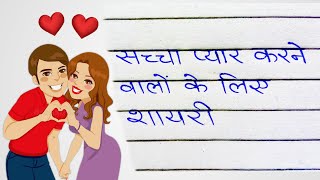 सच्चा प्यार करने
वालों के लिए
शायरी